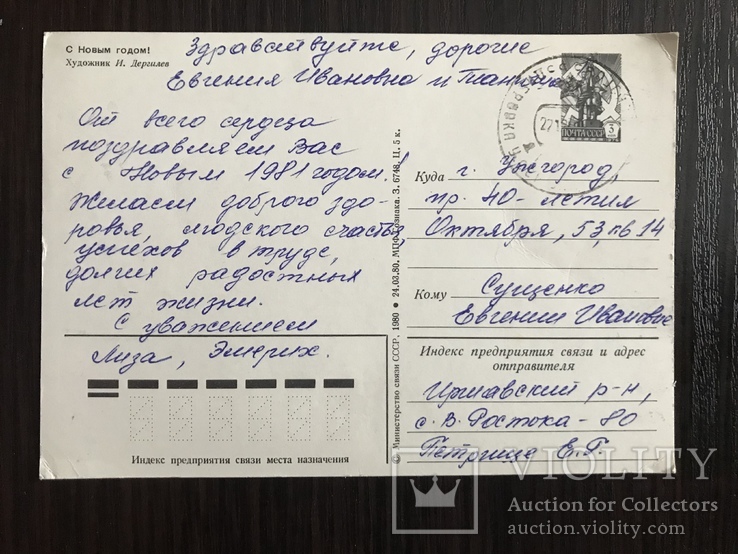 С Новым годом!
Художник И. Дергилев
Здравствуйте, дорогие
Евгения Ивановна и
От всего сердца
поздравляем Вас
с Новым 1981 годом!
Желаем доброго здо-
ровья, людского счастья,
успехов в труде,
долгих радостных
лет жизни.
С уважением
Лиза, Эмерих.
Индекс предприятия связи места назначения
© Министерство связи СССР, 1980 • 24.03.80. МПФ Гознака. З. 6748. Ц. 5 к.
ПОЧТА СССР
3
Куда г. Ужгород,
пр. 40-летия
Октября, 53, кв 14
Кому Сущенко
Евгении Ивановне
Индекс предприятия связи и адрес
отправителя
Иршавский р-н,
с. В. Ростока - 80
Петрище Е. Г.
VIOLITY
Auction for Collectors
auction.violity.com